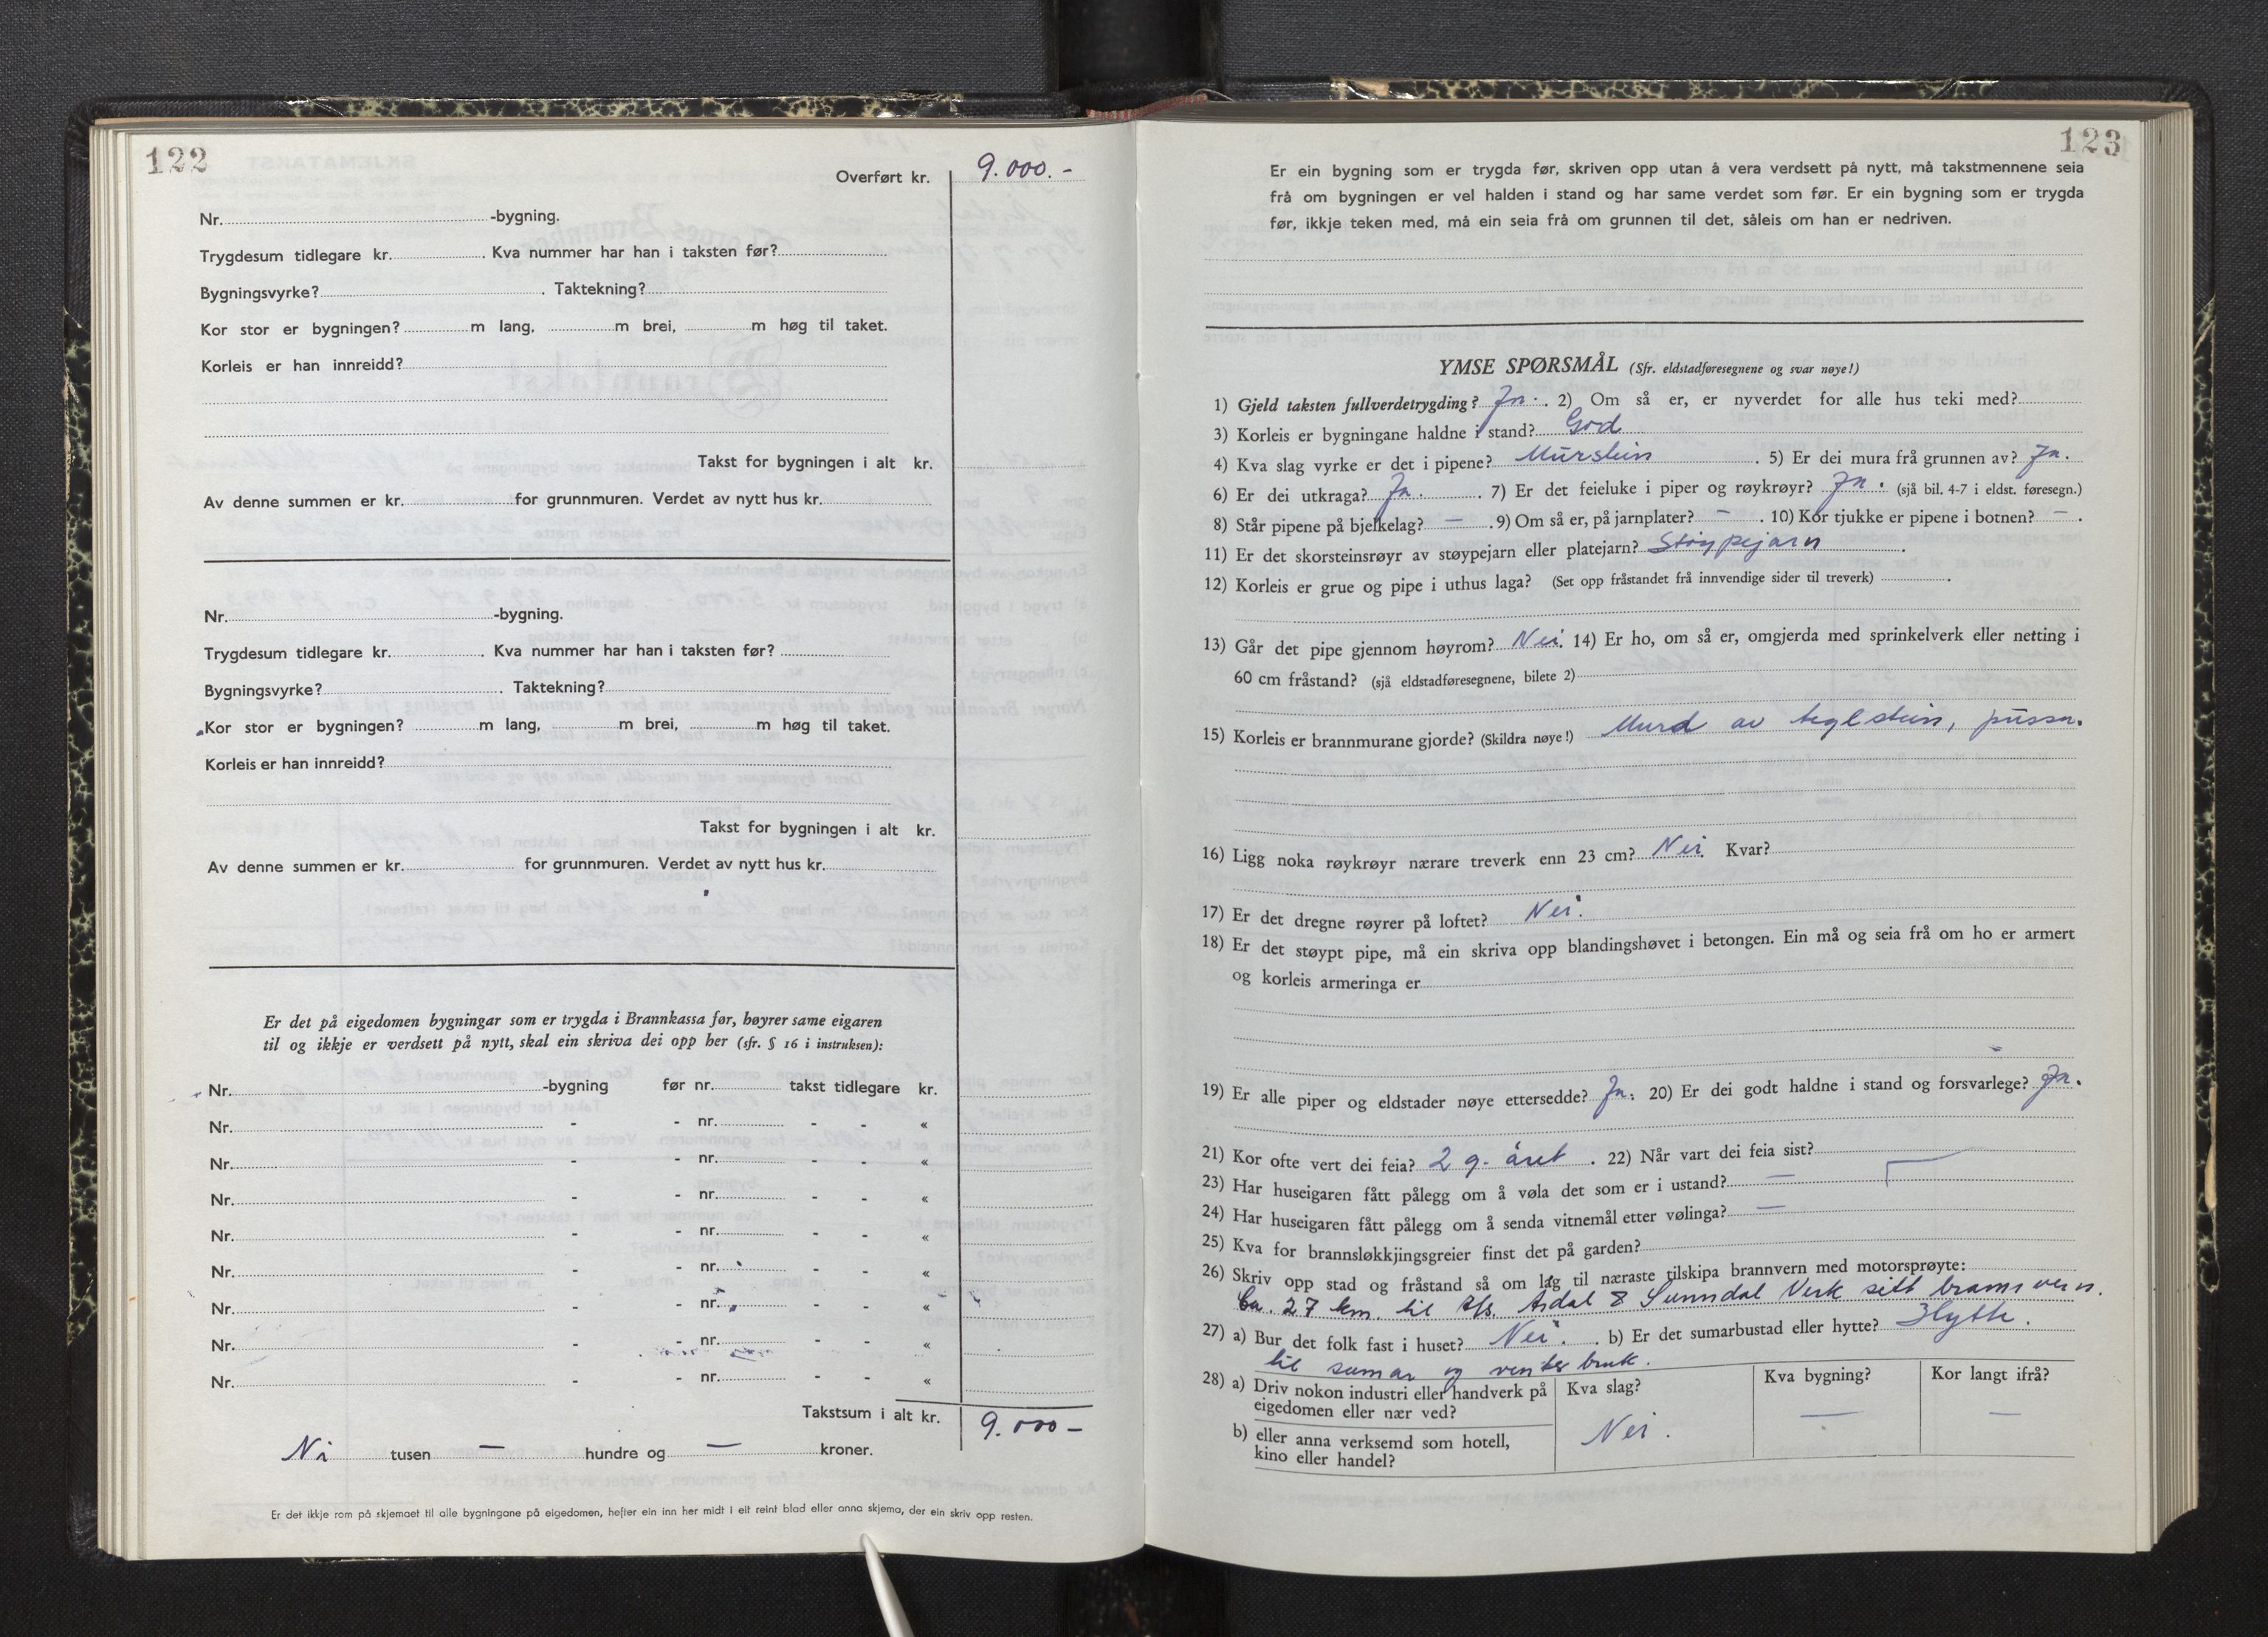 122
Overført kr. 9.000.-
Nr. -bygning.
Trygdesum tidlegare kr. . Kva nummer har han i taksten før?
Bygningsvyrke? . Taktekning?
Kor stor er bygningen? m lang, m brei, m høg til taket.
Korleis er han innreidd?
Takst for bygningen i alt kr.
Av denne summen er kr. for grunnmuren. Verdet av nytt hus kr.
Nr. -bygning.
Trygdesum tidlegare kr. . Kva nummer har han i taksten før?
Bygningsvyrke? . Taktekning?
Kor stor er bygningen? m lang, m brei, m høg til taket.
Korleis er han innreidd?
Takst for bygningen i alt kr.
Av denne summen er kr. for grunnmuren. Verdet av nytt hus kr.
Er det på eigedomen bygningar som er trygda i Brannkassa før, høyrer same eigaren
til og ikkje er verdsett på nytt, skal ein skriva dei opp her (sfr. § 16 i instruksen):
Nr. -bygning før nr. takst tidlegare kr.
Nr. - - nr. - - «
Nr. - - nr. - - «
Nr. - - nr. - - «
Nr. - - nr. - - «
Nr. - - nr. - - «
Nr. - - nr. - - «
Nr. - - nr. - - «
Nr. - - nr. - - «
Takstsum i alt kr. 9.000-
Ni tusen — hundre og — kroner.
Er det ikkje rom på skjemaet til alle bygningane på eigedomen, hefter ein inn her midt i eit reint blad eller anna skjema, der ein skriv opp resten.
123
Er ein bygning som er trygda før, skriven opp utan å vera verdsett på nytt, må takstmennene seia
frå om bygningen er vel halden i stand og har same verdet som før. Er ein bygning som er trygda
før, ikkje teken med, må ein seia frå om grunnen til det, såleis om han er nedriven.
YMSE SPØRSMÅL (Sfr. eldstadføresegnene og svar nøye!)
1) Gjeld taksten fullverdetrygding? Ja. . 2) Om så er, er nyverdet for alle hus teki med?
3) Korleis er bygningane haldne i stand? God
4) Kva slag vyrke er det i pipene? Murstein . 5) Er dei mura frå grunnen av? Ja.
6) Er dei utkraga? Ja. . 7) Er det feieluke i piper og røykrøyr? Ja. (sjå bil. 4-7 i eldst. føresegn.)
8) Står pipene på bjelkelag? — . 9) Om så er, på jarnplater? — . 10) Kor tjukke er pipene i botnen? — .
11) Er det skorsteinsrøyr av støypejarn eller platejarn? Støypejarn .
12) Korleis er grue og pipe i uthus laga? (Set opp fråstandet frå innvendige sider til treverk) .
13) Går det pipe gjennom høyrom? Nei. 14) Er ho, om så er, omgjerda med sprinkelverk eller netting i
60 cm fråstand? (sjå eldstadføresegnene, bilete 2)
15) Korleis er brannmurane gjorde? (Skildra nøye!) Murd av teglstein, pussa.
16) Ligg noka røykrøyr nærare treverk enn 23 cm? Nei. Kvar?
17) Er det dregne røyrer på loftet? Nei.
18) Er det støypt pipe, må ein skriva opp blandingshøvet i betongen. Ein må og seia frå om ho er armert
og korleis armeringa er
19) Er alle piper og eldstader nøye ettersedde? Ja. 20) Er dei godt haldne i stand og forsvarlege? Ja.
21) Kor ofte vert dei feia? 2 g. året . 22) Når vart dei feia sist? —
23) Har huseigaren fått pålegg om å vøla det som er i ustand? —
24) Har huseigaren fått pålegg om å senda vitnemål etter vølinga? —
25) Kva for brannsløkkjingsgreier finst det på garden?
26) Skriv opp stad og fråstand så om lag til næraste tilskipa brannvern med motorsprøyte:
Ca. 27 km. til A/s. Årdal & Sunndal Verk sitt brannvern.
27) a) Bur det folk fast i huset? Nei. . b) Er det sumarbustad eller hytte? Hytte.
til sumar og venter bruk.
28) a) Driv nokon industri eller handverk på Kva slag? Kva bygning? Kor langt ifrå?
eigedomen eller nær ved?
Nei. — —
b) eller anna verksemd som hotell,
kino eller handel?